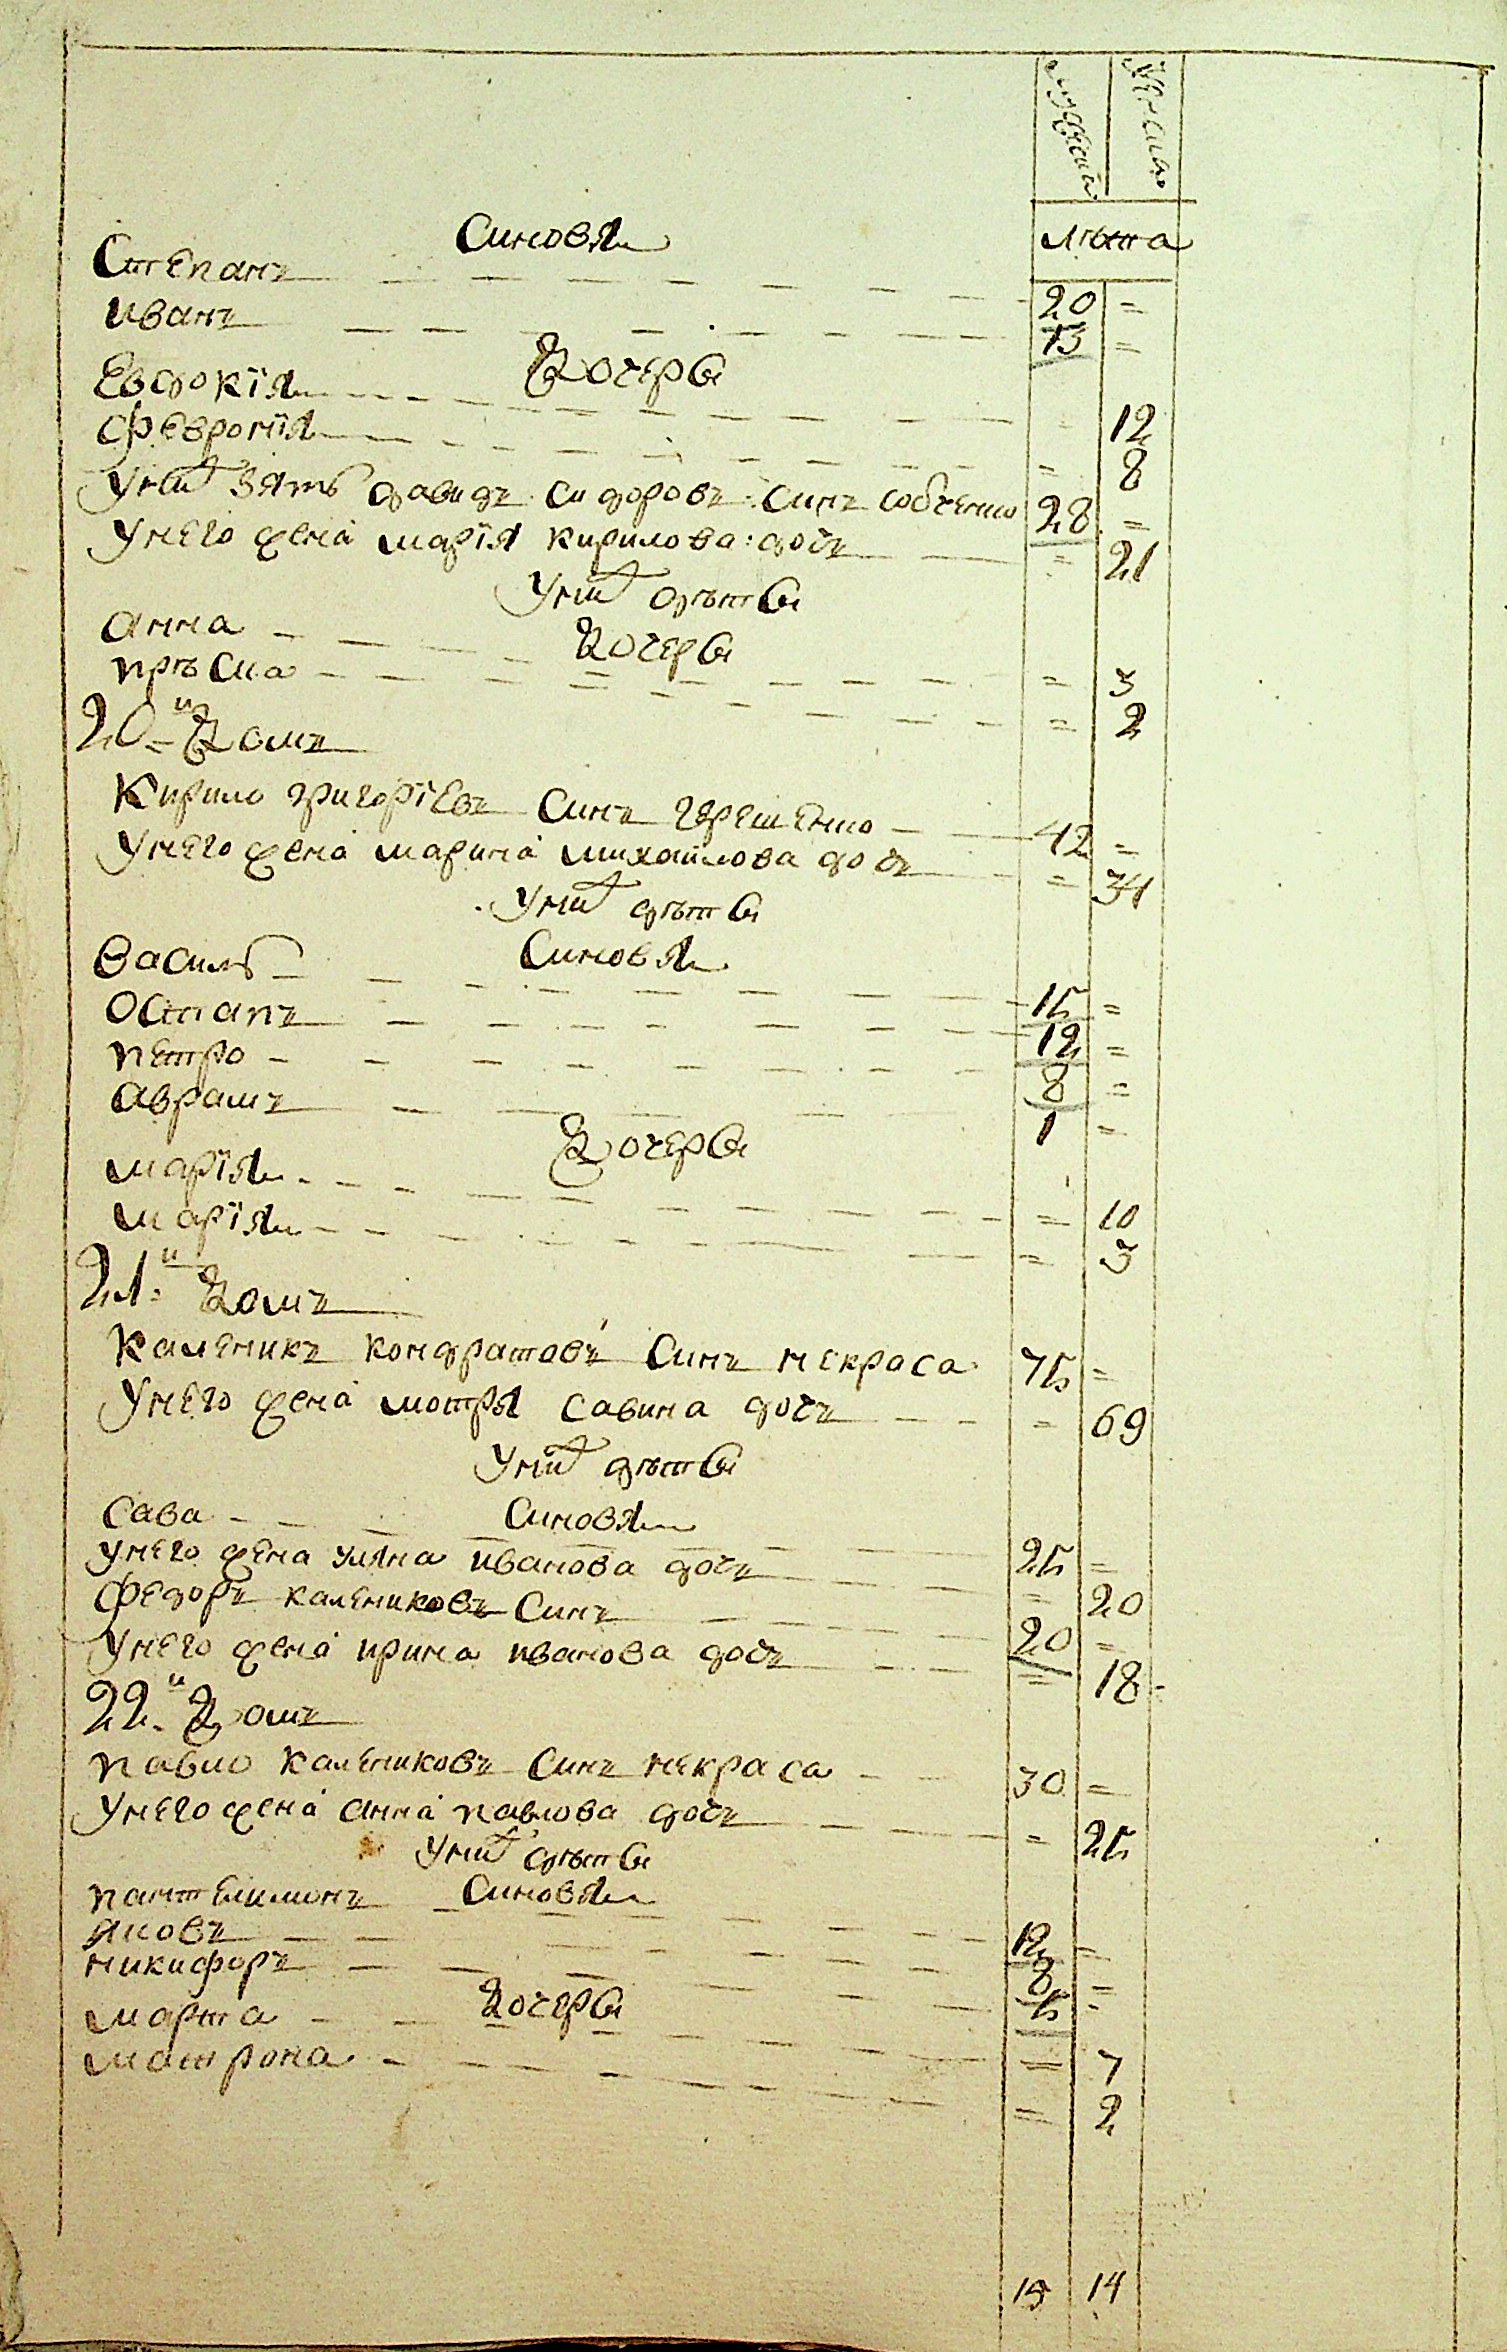 мужеска женска
лѣта
Синовя
Степанъ 20 =
Иванъ 13 =
Дочери
Евдокія 12
Феврония = 8
У них зять давидъ Сидоровъ: синъ собченко 28 =
У него жена марія кирилова: дочъ = 21
У них дѣти
Дочери
анна = 3
прѣсиа = 2
20-и Домъ
Кирило григоріевъ Синъ герешенко 42 =
У него жена марина михайлова дочъ = 34
У них дѣти
Синовя
василь 15 =
Остапъ 12 =
петро 8 =
аврамъ 1 =
Дочери
марія = 10
марія = 3
21-и Домъ
Каленикъ кондратовъ Синъ некраса 75 =
У него жена мотря савина дочъ = 69
У них дѣти
Синовя
сава 25 =
У него жена уляна иванова дочъ = 20
федоръ калениковъ Синъ 20 =
У него жена ирина иванова дочъ = 18
22-и Домъ
павло калениковъ Синъ некраса 30 =
У него жена анна павлова дочъ = 25
У них дѣти
Синовя
пантелимонъ 12 =
яковъ 8 =
никифоръ 5 =
Дочери
марта = 7
матрона = 2
15 14